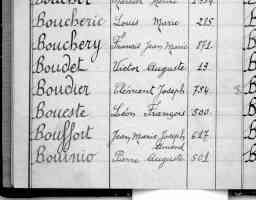 Boucherie Louis Marie 215
Bouchery Francis Jean Marie 871
Boudet Victor Auguste 13
Boudier Clément Joseph 754
Boueste Léon François 500
Bouffort Jean Marie Joseph 617
Bouinio Pierre Auguste 501